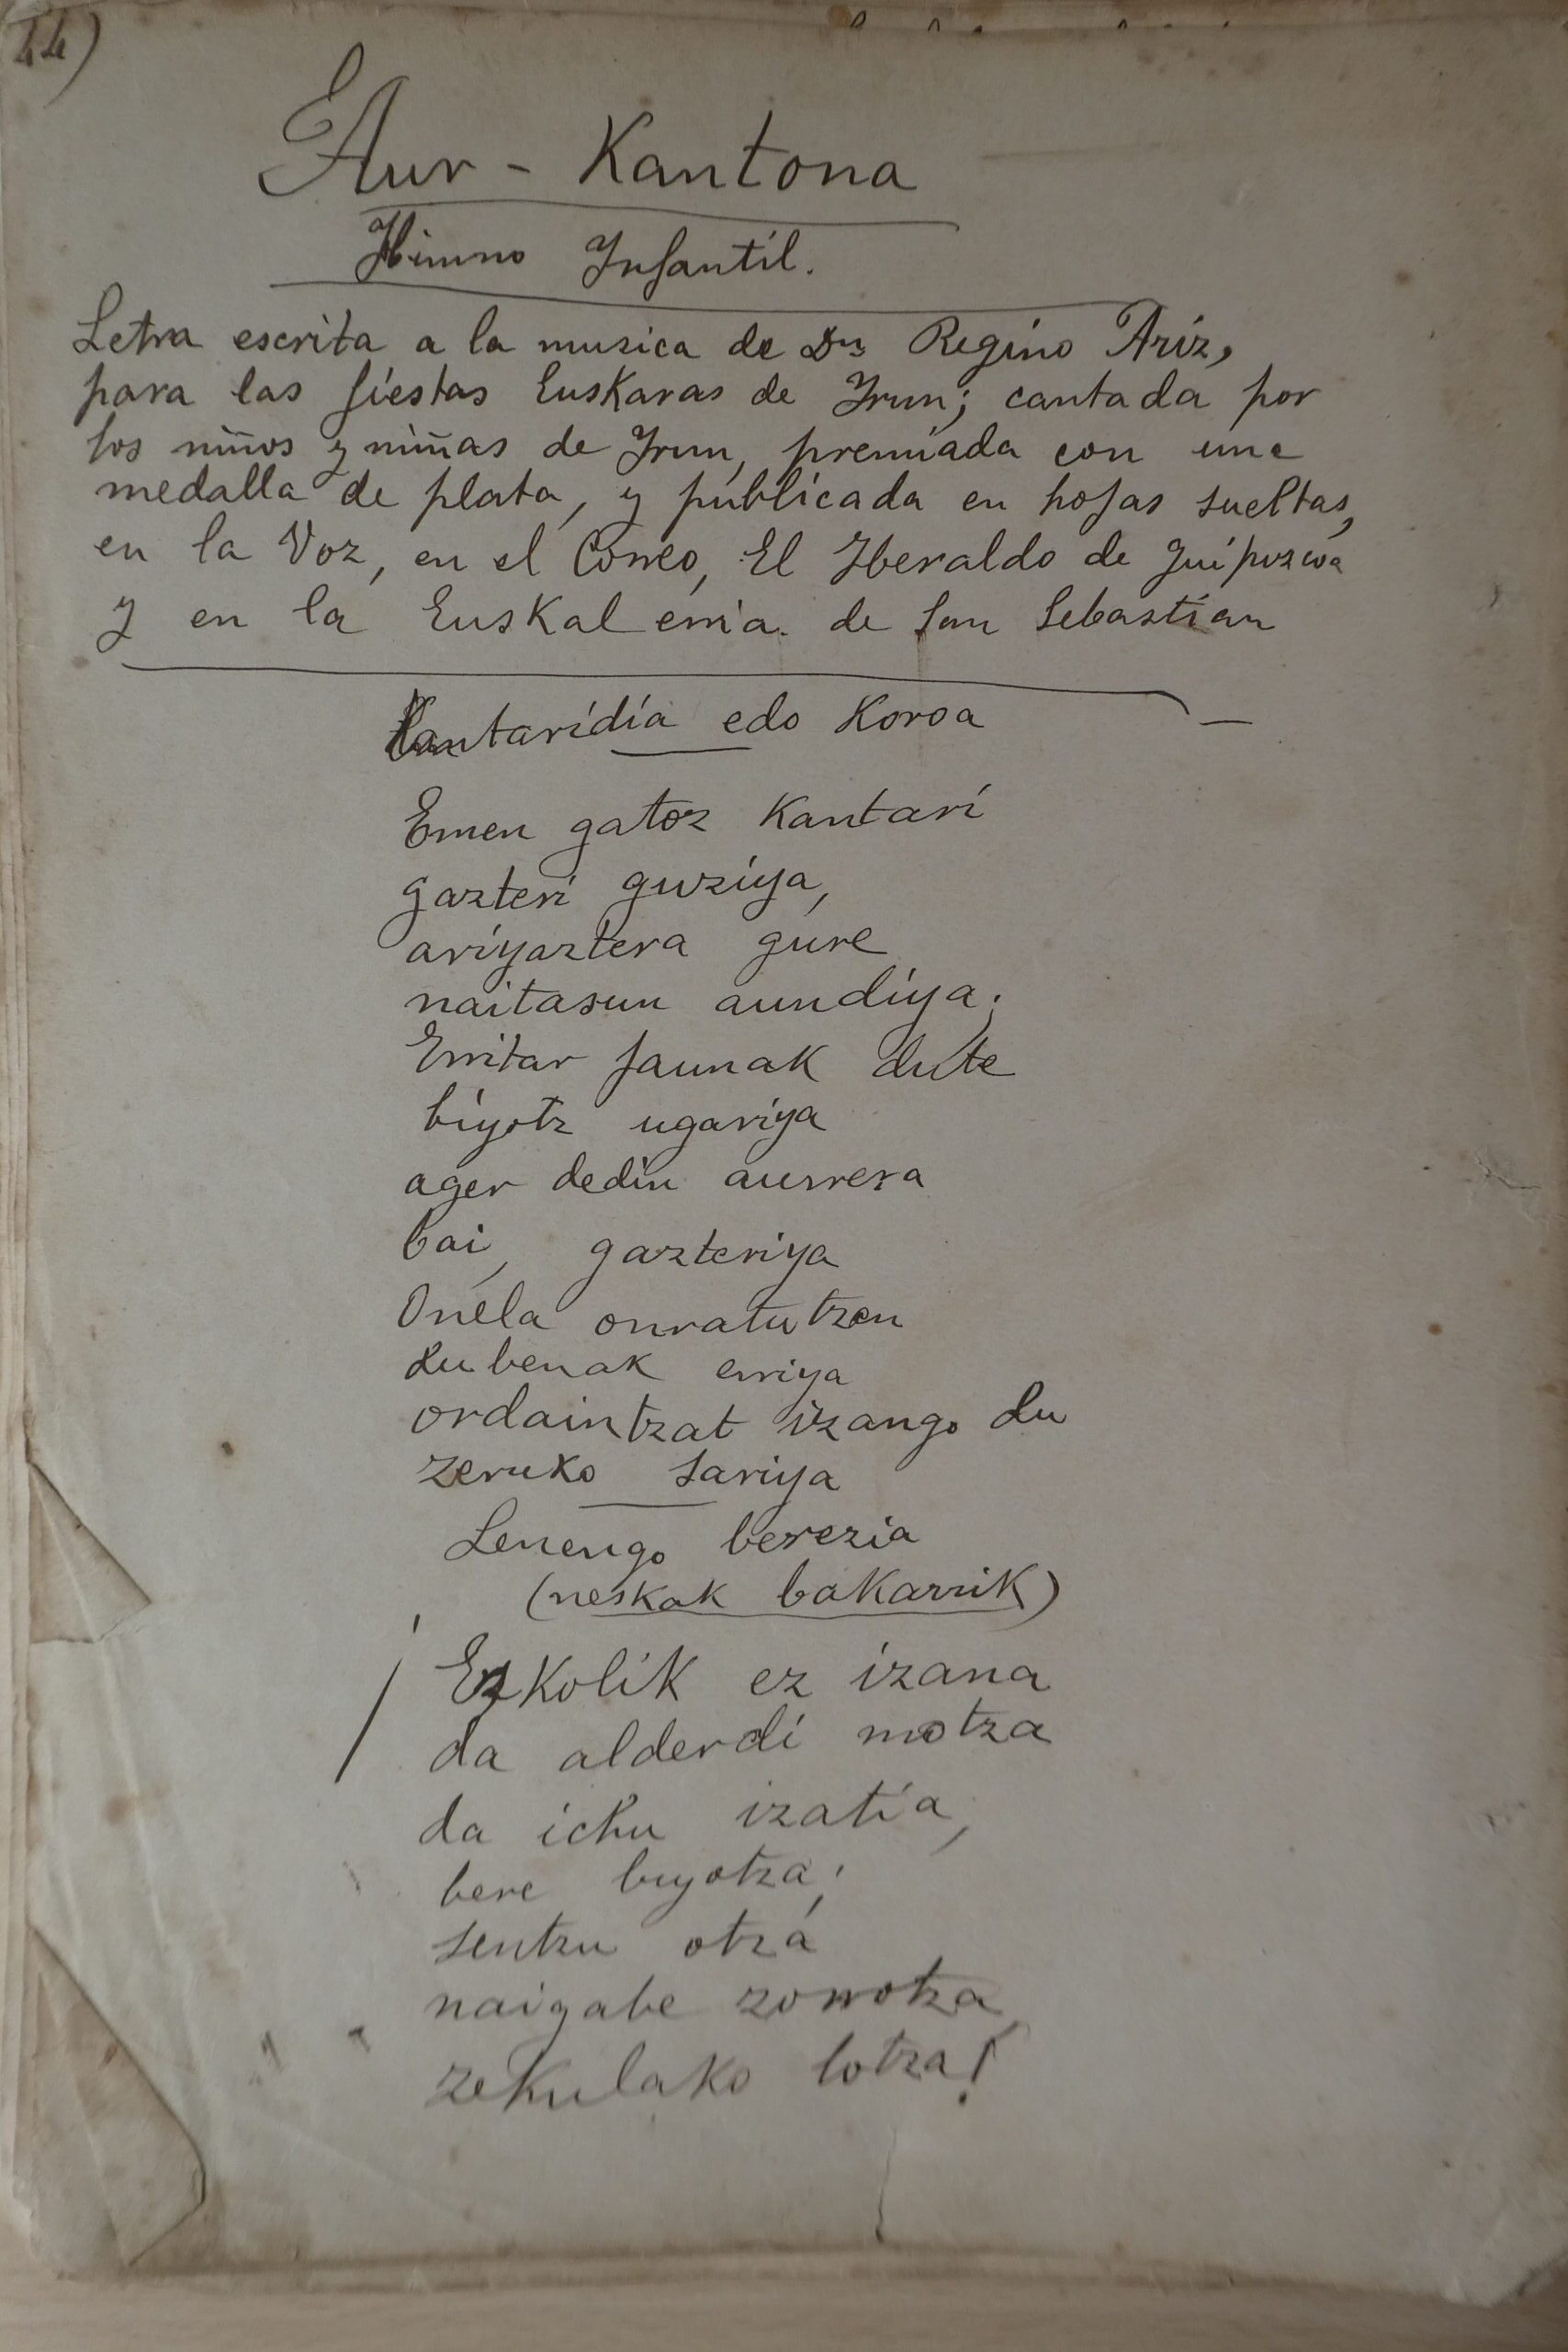 44)
Aur - Kantona
Himno Infantil.
Letra escrita a la musica de Dn Regino Ariz,
para las fiestas Euskaras de Irun; cantada por
los niños y niñas de Irun, premiada con una
medalla de plata, y publicada en hojas sueltas,
en la Voz, en el Correo, El Heraldo de Guipuzcoa
y en la Euskal erria. de San Sebastian
Kantaridia edo Koroa
Emen gatoz Kantari
gazteri guziya,
ariyaztera gure
naitasun aundiya;
Erritar jaunak dute
biyotz ugariya
ager dedin aurrera
bai, gazteriya
Onela onratutzen
dubenak erriya
ordaintzat izango du
zeruko sariya
Lenengo berezia
(neskak bakarrik)
Ezkolik ez izana
da alderdi motza
da ichu izatia,
bere biyotza;
sentzu otza
naigabe zorrotza,
zekulako lotza!